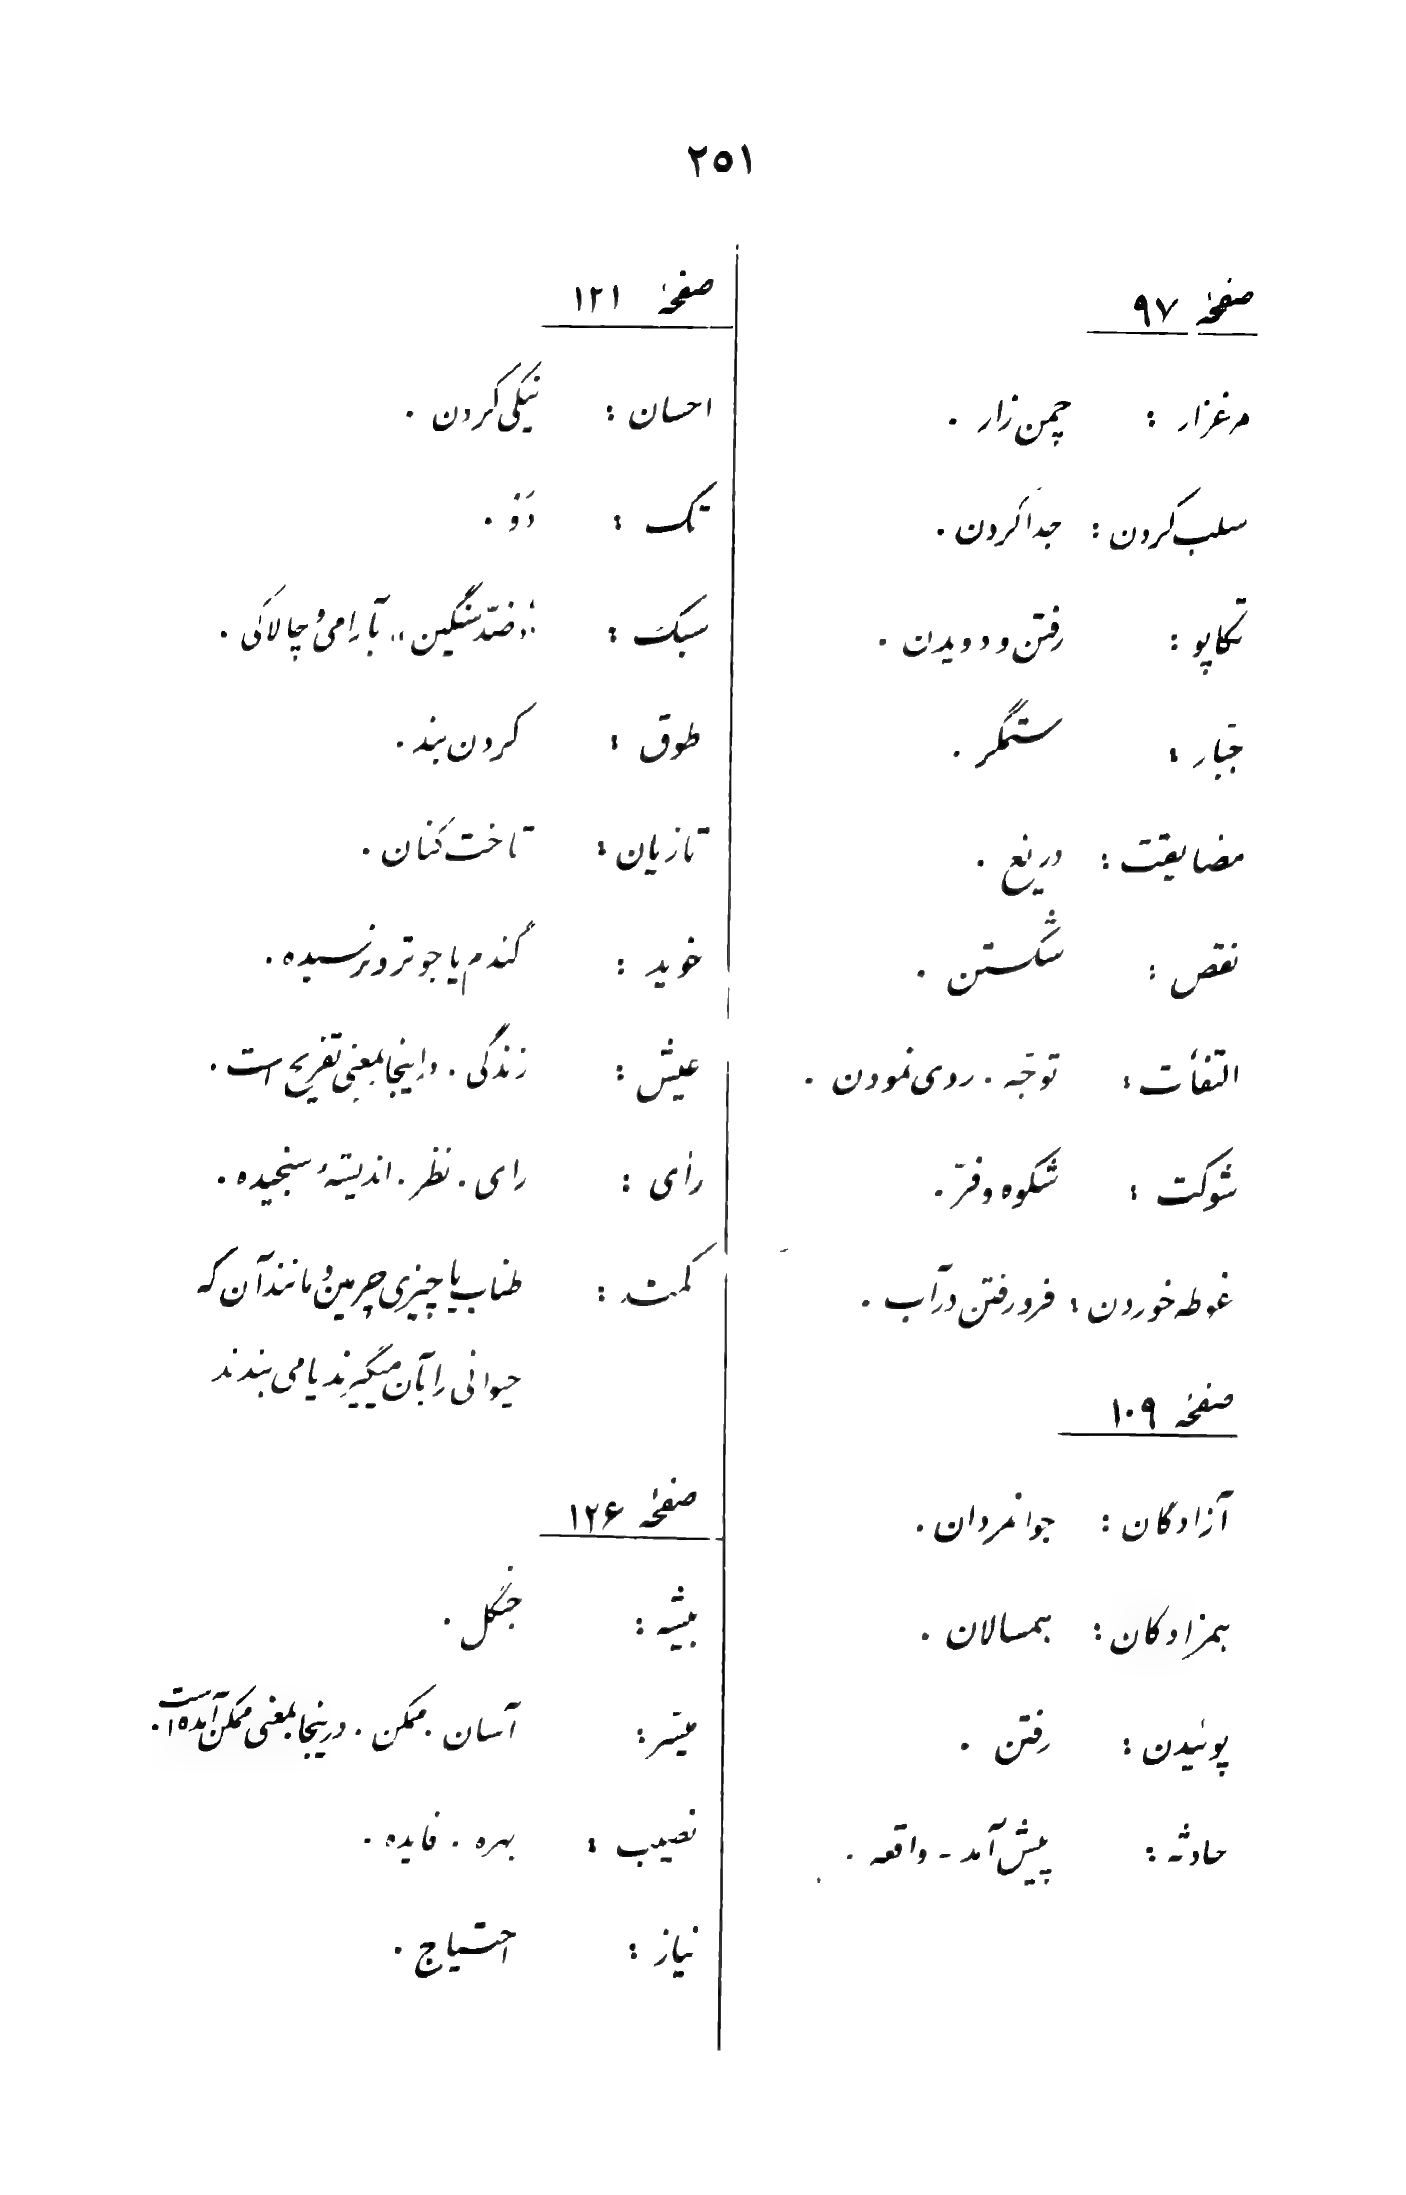 ۲۵۱
صفحهٔ ۹۷
مرغزار : چمن زار .
سلب کردن : جدا کردن .
تکاپو : رفتن و دویدن .
جبّار : ستمگر .
مضایقت : دریغ .
نقص : شکستن .
التفات : توجّه . روی نمودن .
شوکت : شکوه و فرّ .
غوطه خوردن : فرو رفتن در آب .
صفحهٔ ۱۰۹
آزادگان : جوانمردان .
همزادگان : همسالان .
پوئیدن : رفتن .
حادثه : پیش آمد - واقعه .
صفحهٔ ۱۲۱
احسان : نیکی کردن .
تک : دَوْ .
سبک : «ضدّ سنگین» بآرامی و چالاکی .
طوق : گردن بند .
تازیان : تاخت کنان .
خوید : گندم یا جو تر و نرسیده .
عیش : زندگی . در اینجا بمعنی تفریح است .
رأی : رای . نظر . اندیشهٔ سنجیده .
کمند : طناب یا چیزی چرمین و مانند آن که
حیوانی را بآن میگیرند یا می بندند
صفحهٔ ۱۲۶
بیشه : جنگل .
میسّر : آسان . ممکن . در اینجا بمعنی ممکن آمده است .
نصیب : بهره . فایده .
نیاز : احتیاج .